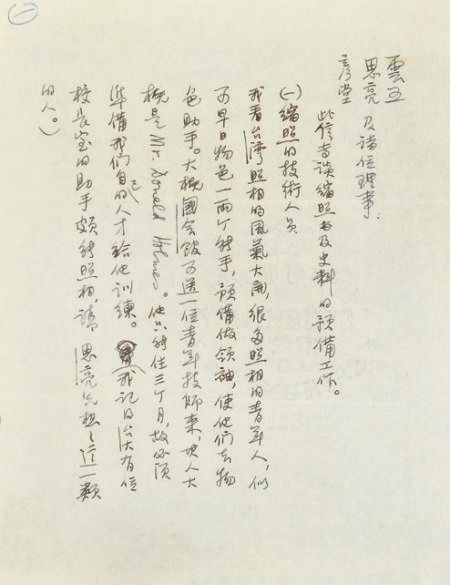 ㊀
雲五
思亮 及諸位理事.
彥堂
此信專談縮照書及史料的預備工作。
(一)縮照的技術人員
我看台灣照相的風氣大開,很多照相的青年人,似
可早日物色一兩个能手,預備做領袖,使他們去物
色助手。大概國會館可送一位青年技師來,其人大
概是Mr. Donald Holmes。他只能住三个月,故必須
準備我們自己的人才給他訓練。(我記得台大有位
校長室的助手頗能照相,請 思亮兄想々這一類
的人。)